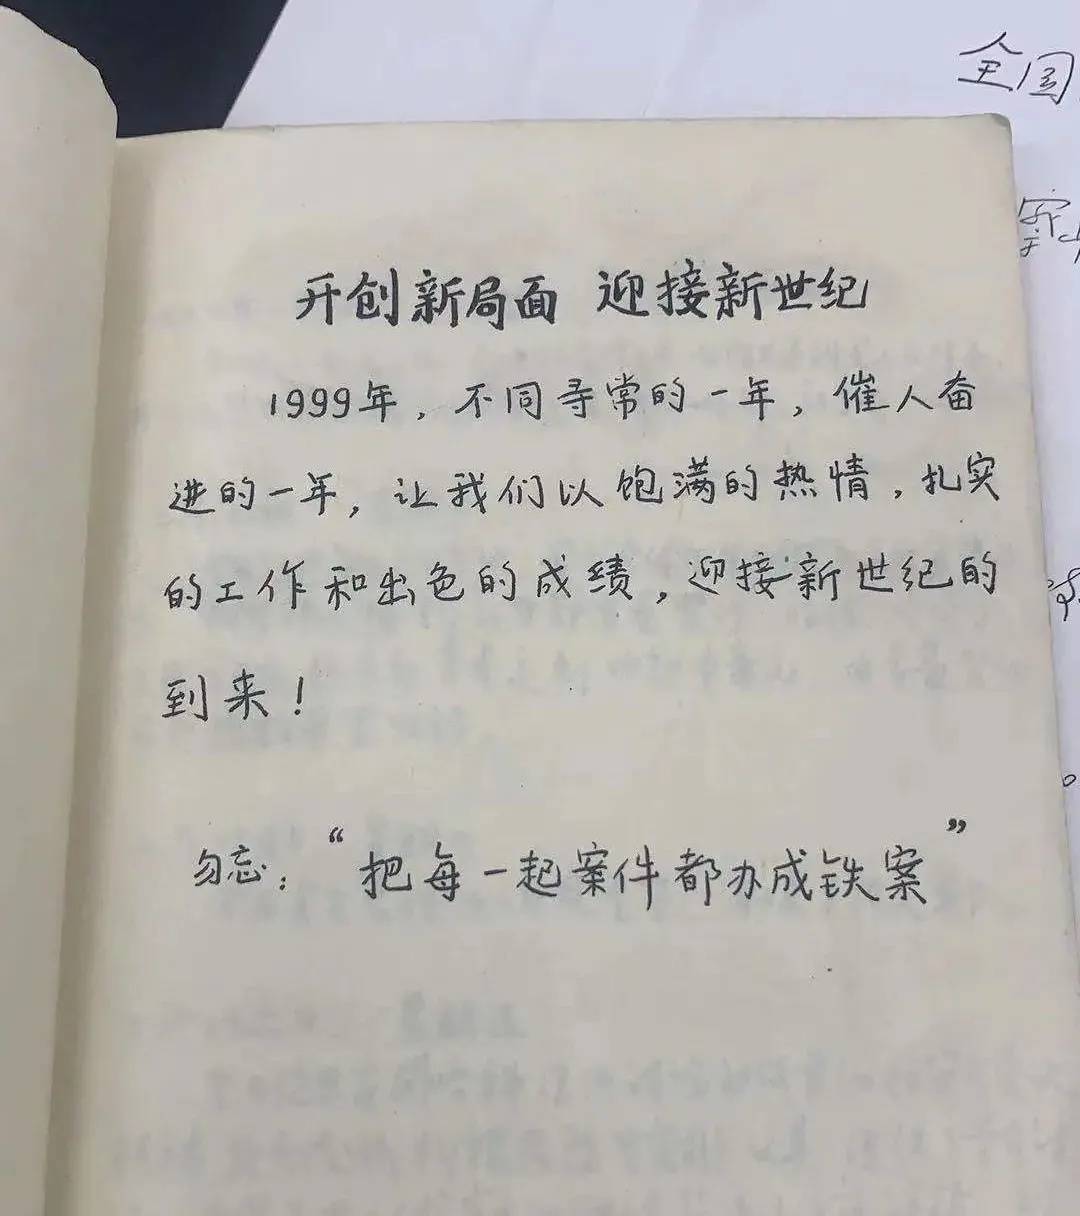 全国
开创新局面 迎接新世纪
1999年，不同寻常的一年，催人奋
进的一年，让我们以饱满的热情，扎实
的工作和出色的成绩，迎接新世纪的
到来！
勿忘：“把每一起案件都办成铁案”